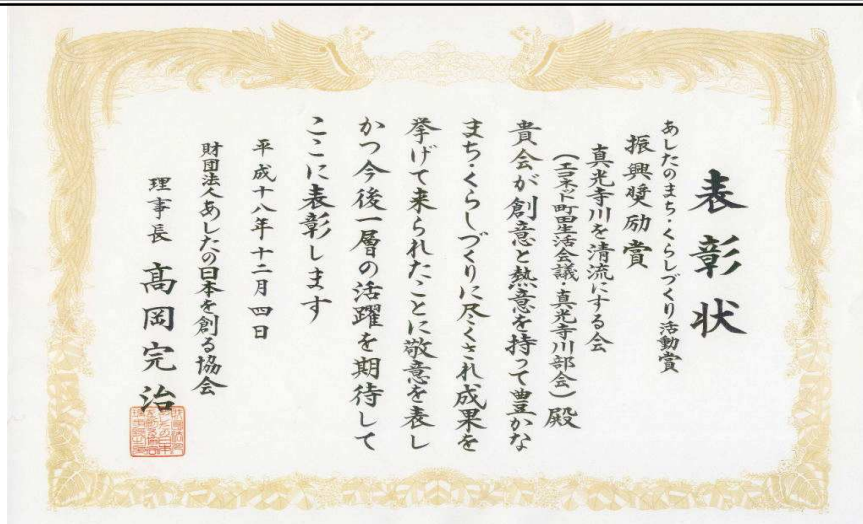 表彰状
あしたのまち・くらしづくり活動賞
振興奨励賞
真光寺川を清流にする会
(エコネット町田生活会議・真光寺川部会)殿
貴会が創意と熱意を持って豊かな
まち・くらしづくりに尽くされ成果を
挙げて来られたことに敬意を表し
かつ今後一層の活躍を期待して
ここに表彰します
平成十八年十二月四日
財団法人あしたの日本を創る協会
理事長 髙岡完治